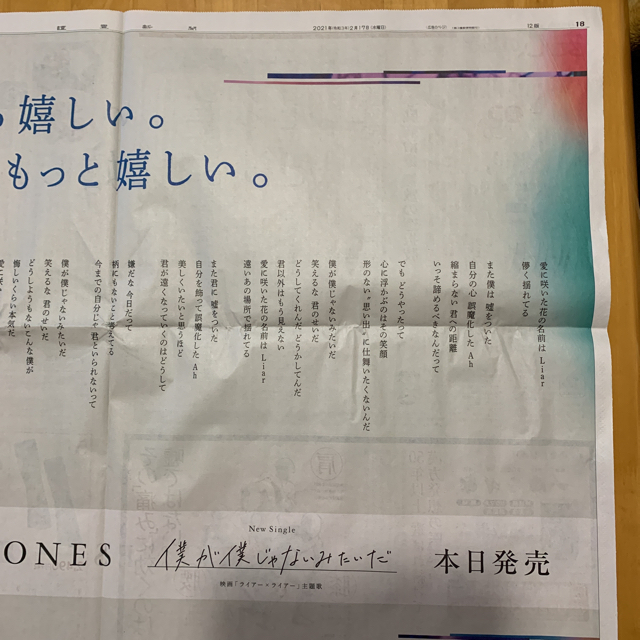 讀賣新聞
2021年(令和3年)2月17日(水曜日)
12版
18
嬉しい。
もっと嬉しい。
愛に咲いた花の名前は Liar
儚く揺れてる
また僕は嘘をついた
自分の心 誤魔化した Ah
縮まらない 君への距離
いっそ諦めるべきなんだって
でも どうやったって
心に浮かぶのはその笑顔
形のない“思い出”に仕舞いたくないんだ
僕が僕じゃないみたいだ
笑えるな 君のせいだ
どうしてくれんだ どうかしてんだ
君以外はもう見えない
愛に咲いた花の名前は Liar
遠いあの場所で揺れてる
また君に嘘をついた
自分を飾って誤魔化した Ah
美しくいたいと思うほど
君が遠くなっていくのはどうして
嫌だな 今日だって
柄にもないこと考えてる
今までの自分じゃ 君といられないって
僕が僕じゃないみたいだ
笑えるな 君のせいだ
どうしようもない こんな僕が
悔しいくらい本気だ
ONES
New Single
僕が僕じゃないみたいだ
映画「ライアー×ライアー」主題歌
本日発売